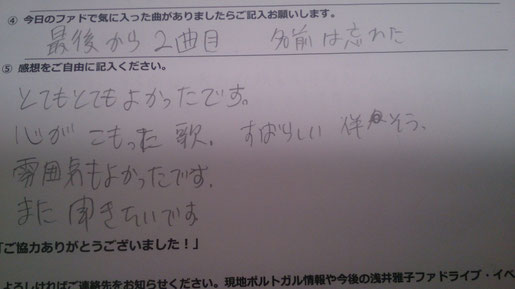 ④ 今日のファドで気に入った曲がありましたらご記入お願いします。
最後から2曲目 名前は忘れた
⑤ 感想をご自由に記入ください。
とてもとてもよかったです。
心がこもった歌、すばらしい伴そう、
雰囲気もよかったです。
また聞きたいです
「ご協力ありがとうございました!」
よろしければご連絡先をお知らせください。現地ポルトガル情報や今後の浅井雅子ファドライブ・イベ